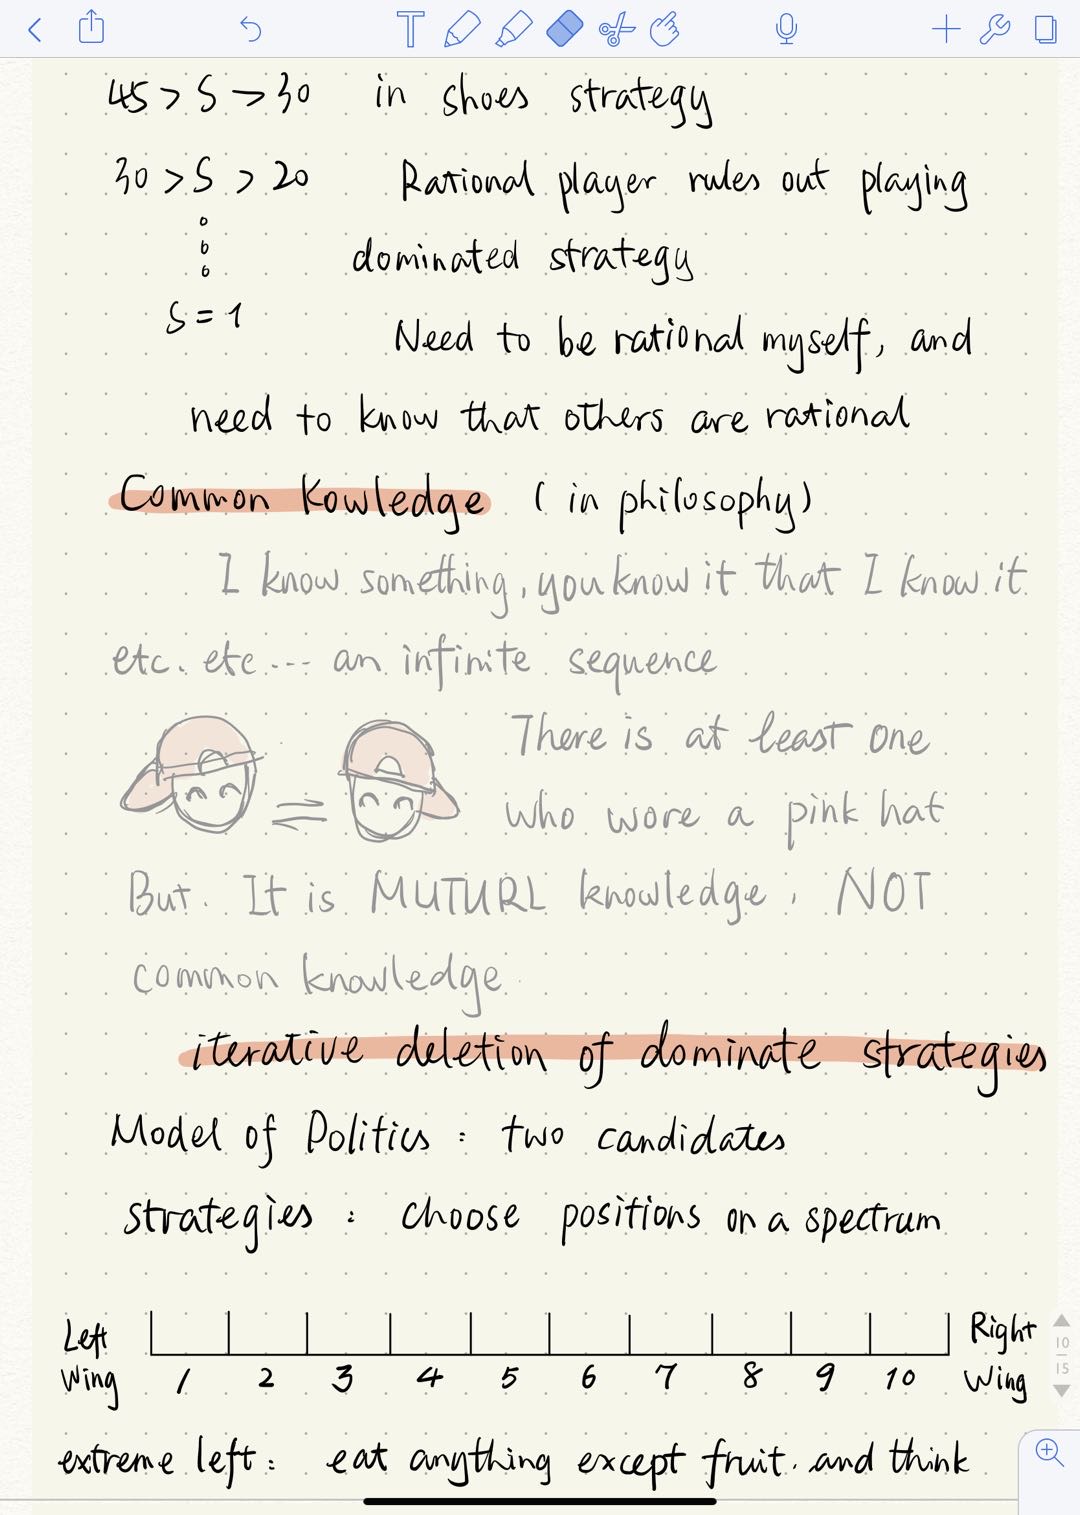 45 > S > 30 in shoes strategy
30 > S > 20 Rational player rules out playing
dominated strategy
S = 1
Need to be rational myself, and
need to know that others are rational
Common Kowledge ( in philosophy)
I know something, you know it that I know it
etc. etc... an infinite sequence
There is at least one
who wore a pink hat
But. It is MUTURL knowledge, NOT
common knowledge.
iterative deletion of dominate strategies
Model of Politics : two candidates
strategies : choose positions on a spectrum
Left Right
Wing 1 2 3 4 5 6 7 8 9 10 Wing
extreme left : eat anything except fruit. and think
10
15